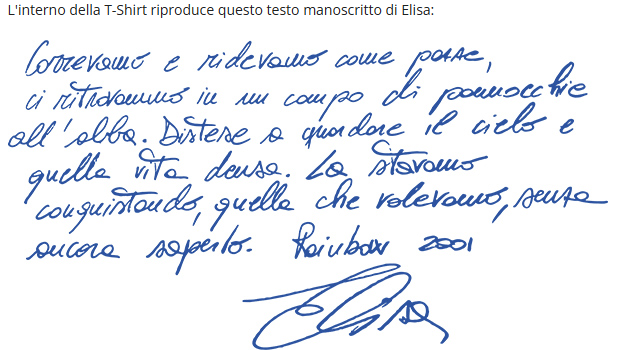 L'interno della T-Shirt riproduce questo testo manoscritto di Elisa:
Correvamo e ridevamo come pazze,
ci ritrovammo in un campo di pannocchie
all'alba. Distese a guardare il cielo e
quella vita densa. La stavamo
conquistando, quella che volevamo, senza
ancora saperlo. Rainbow 2001
Elisa